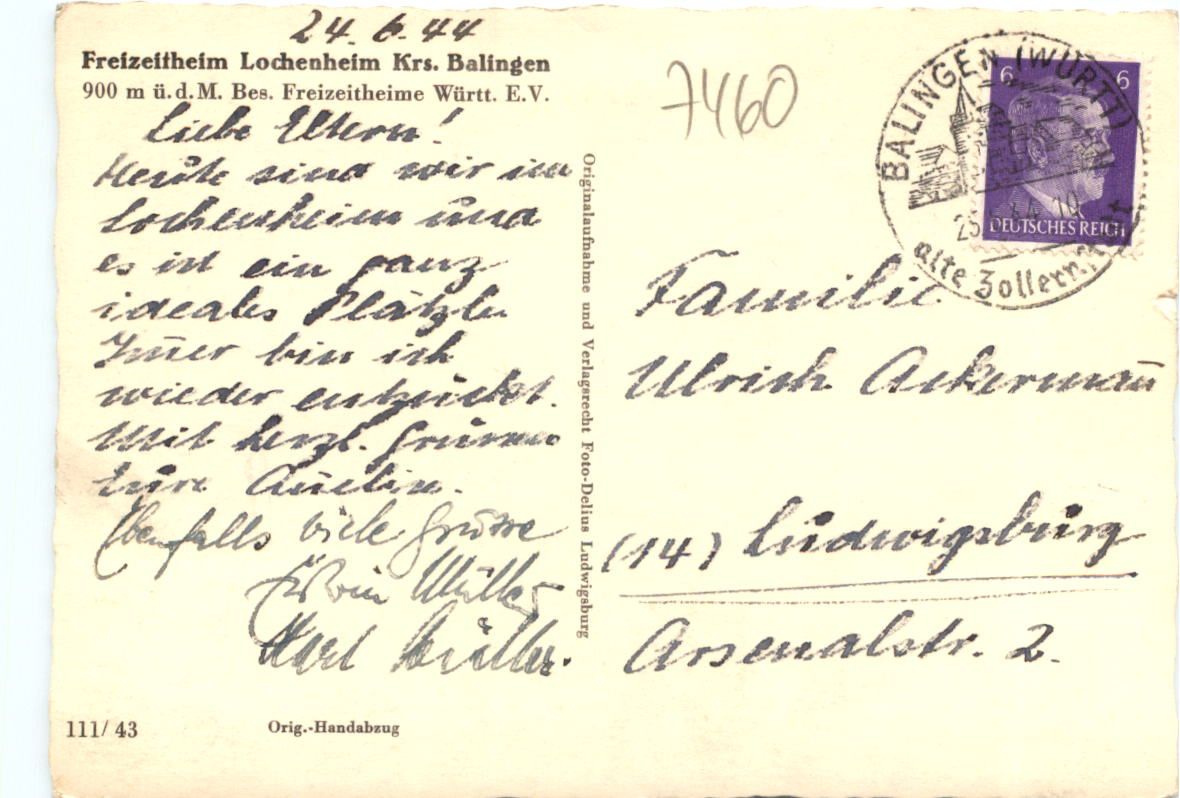 24. 6. 44
Freizeitheim Lochenheim Krs. Balingen
900 m ü. d. M. Bes. Freizeitheime Württ. E.V.
Liebe Eltern!
Heute sind wir im
Lochenheim und
es ist ein ganz
ideales Plätzle
Immer bin ich
wieder entzückt.
Mit herzl. Grüssen
Eure
Ebenfalls viele Grüsse
Erwin Müller
Karl Müller.
111/43
Orig.-Handabzug
Originalaufnahme und Verlagsrecht Foto-Delius Ludwigsburg
7460
BALINGEN (WÜRTT)
alte Zollern
6 6
DEUTSCHES REICH
Familie
Ulrich Ackermann
(14) Ludwigsburg
Arsenalstr. 2.